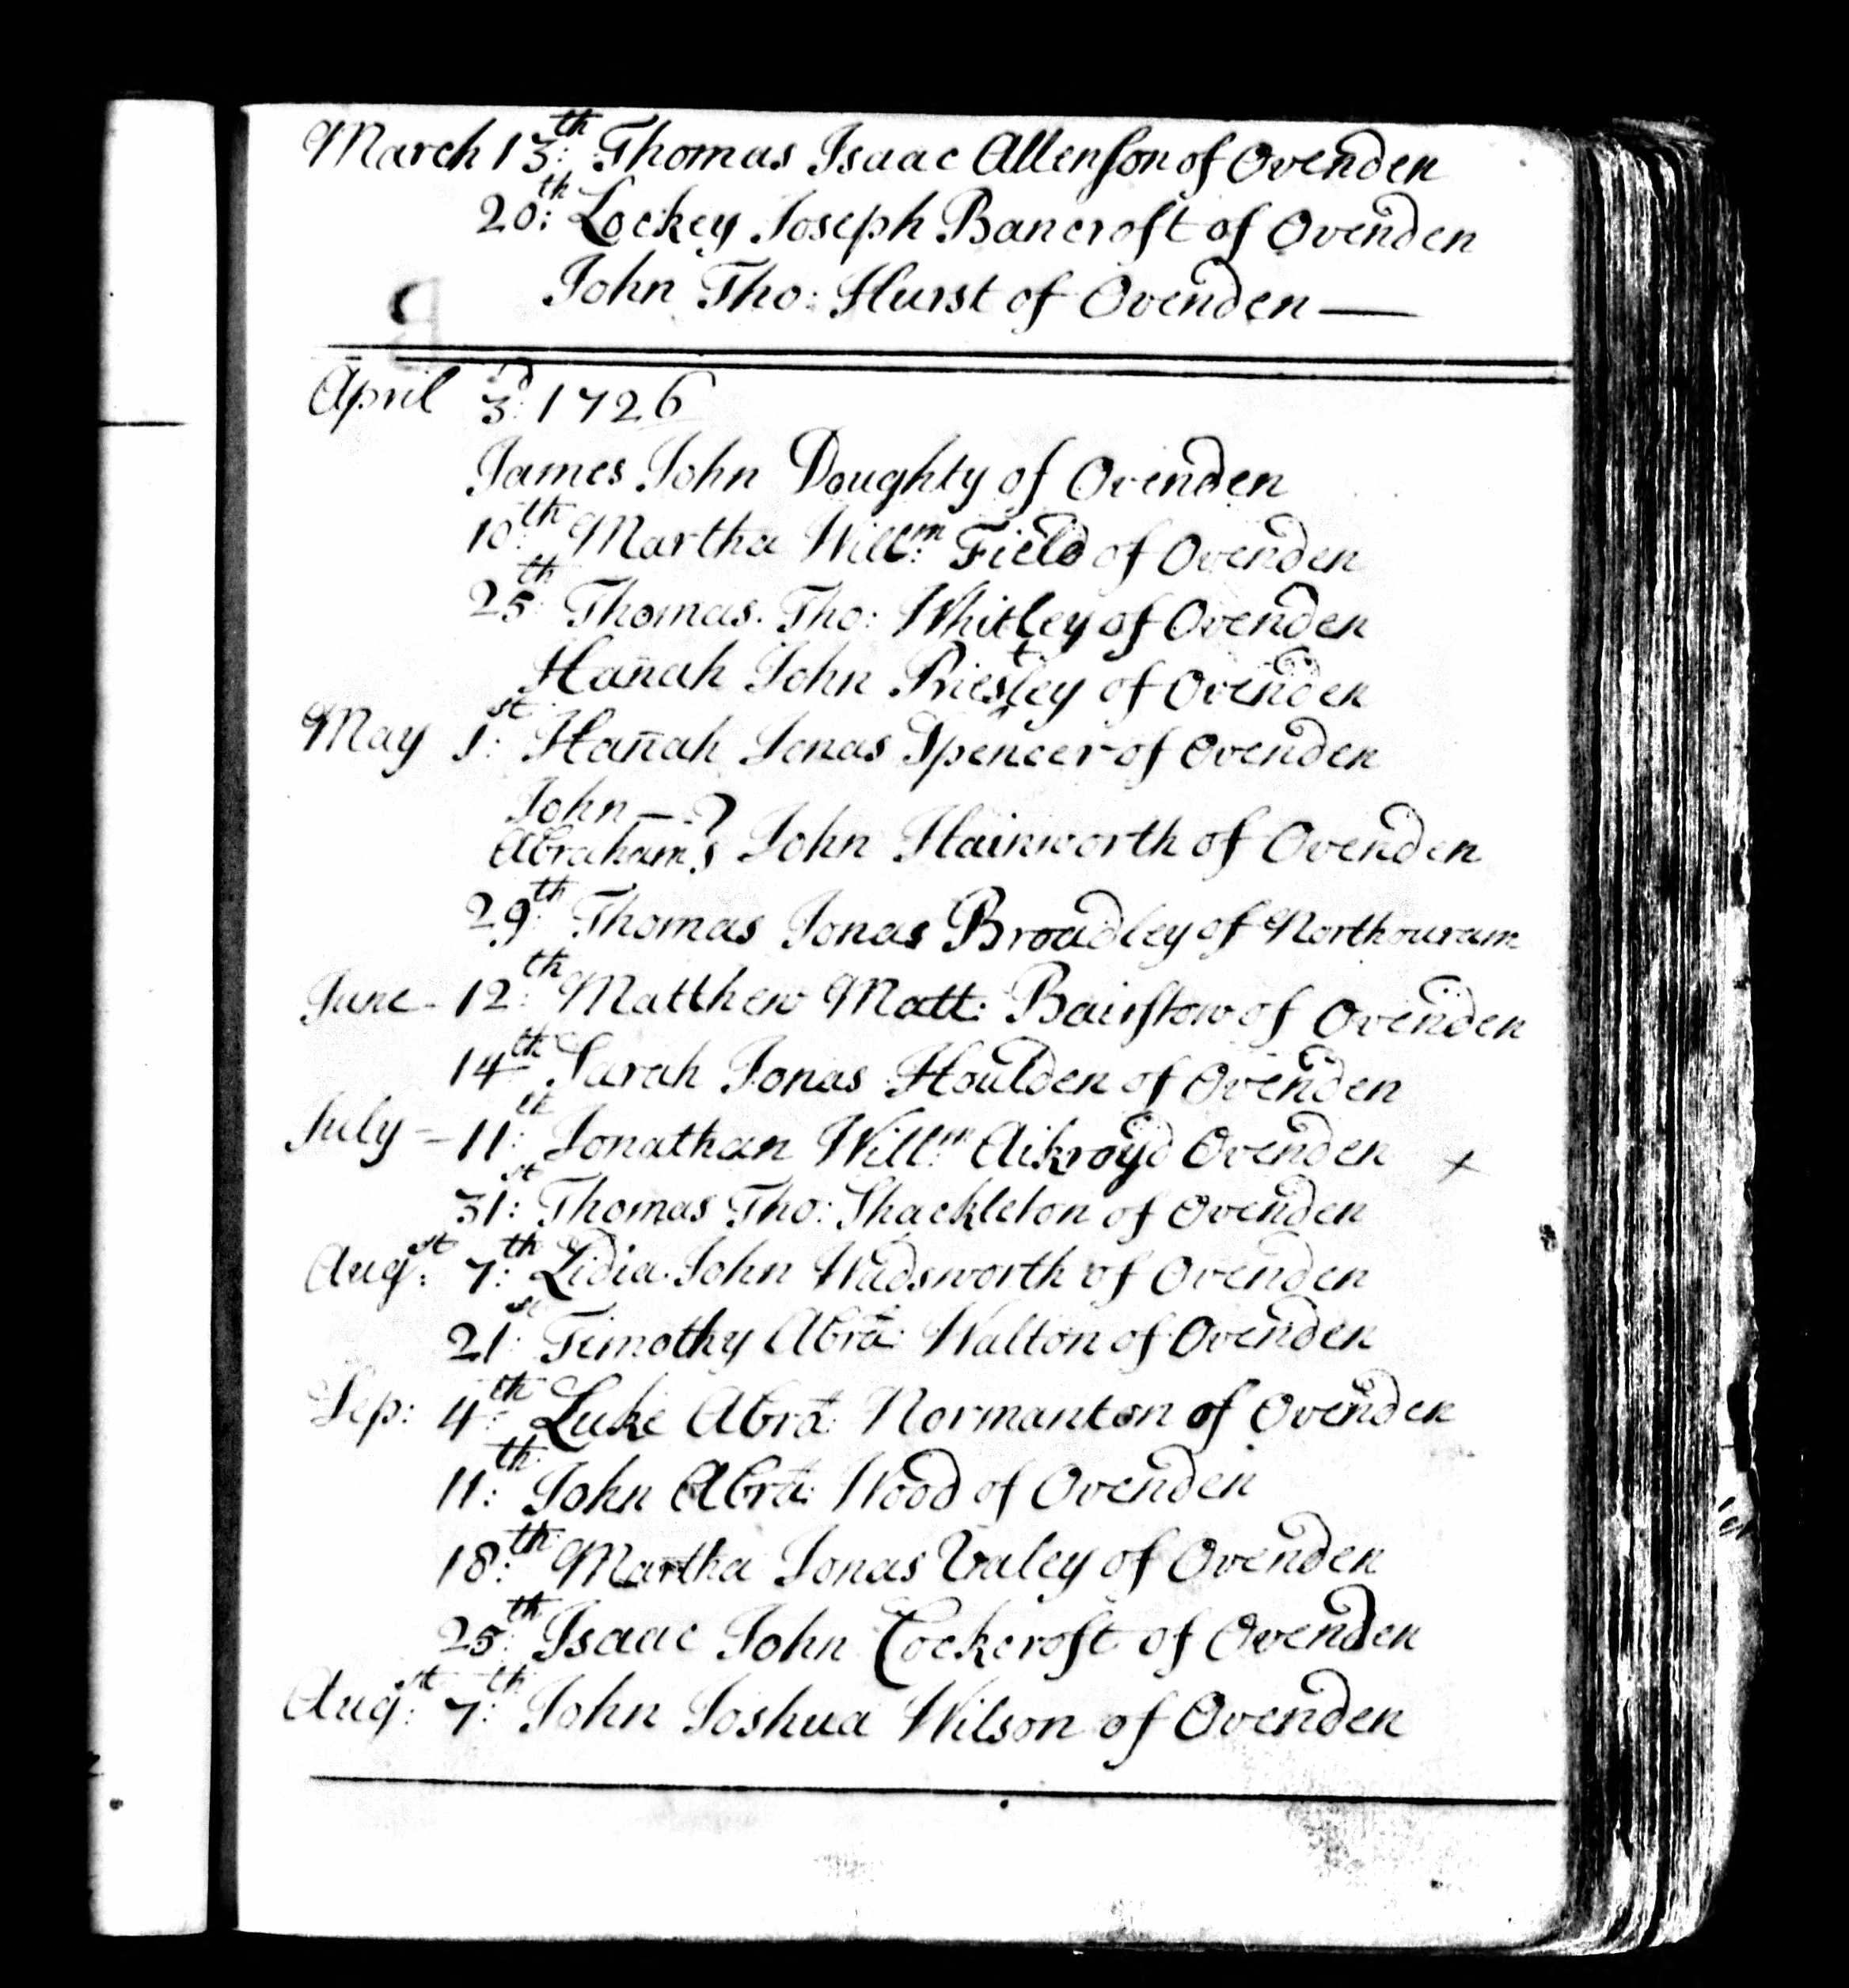 March 13th: Thomas Isaac Allenson of Ovenden
20th: Lockey Joseph Bancroft of Ovenden
John Tho: Hurst of Ovenden —
April 3d: 1726
James John Doughty of Ovenden
10th: Martha Willm: Field of Ovenden
25th: Thomas. Tho: Whitley of Ovenden
Han̄ah John Priestley of Ovenden
May 1st: Han̄ah Jonas Spencer of Ovenden
John —
Abraham } John Hainworth of Ovenden
29th: Thomas Jonas Broadley of Northouram
June - 12th: Matthew Matt: Bairstow of Ovenden
14th Sarah Jonas Houlden of Ovenden
July - 11th: Jonathan Willm: Aikroyd Ovenden ×
31st: Thomas Tho: Shackleton of Ovenden
Augst: 7th: Lidia John Wadsworth of Ovenden
21st: Timothy Abra: Walton of Ovenden
Sep: 4th: Luke Abra: Normanton of Ovenden
11th: John Abra: Wood of Ovenden
18th: Martha Jonas Valey of Ovenden
25th: Isaac John Cockcroft of Ovenden
Augst: 7th: John Joshua Wilson of Ovenden